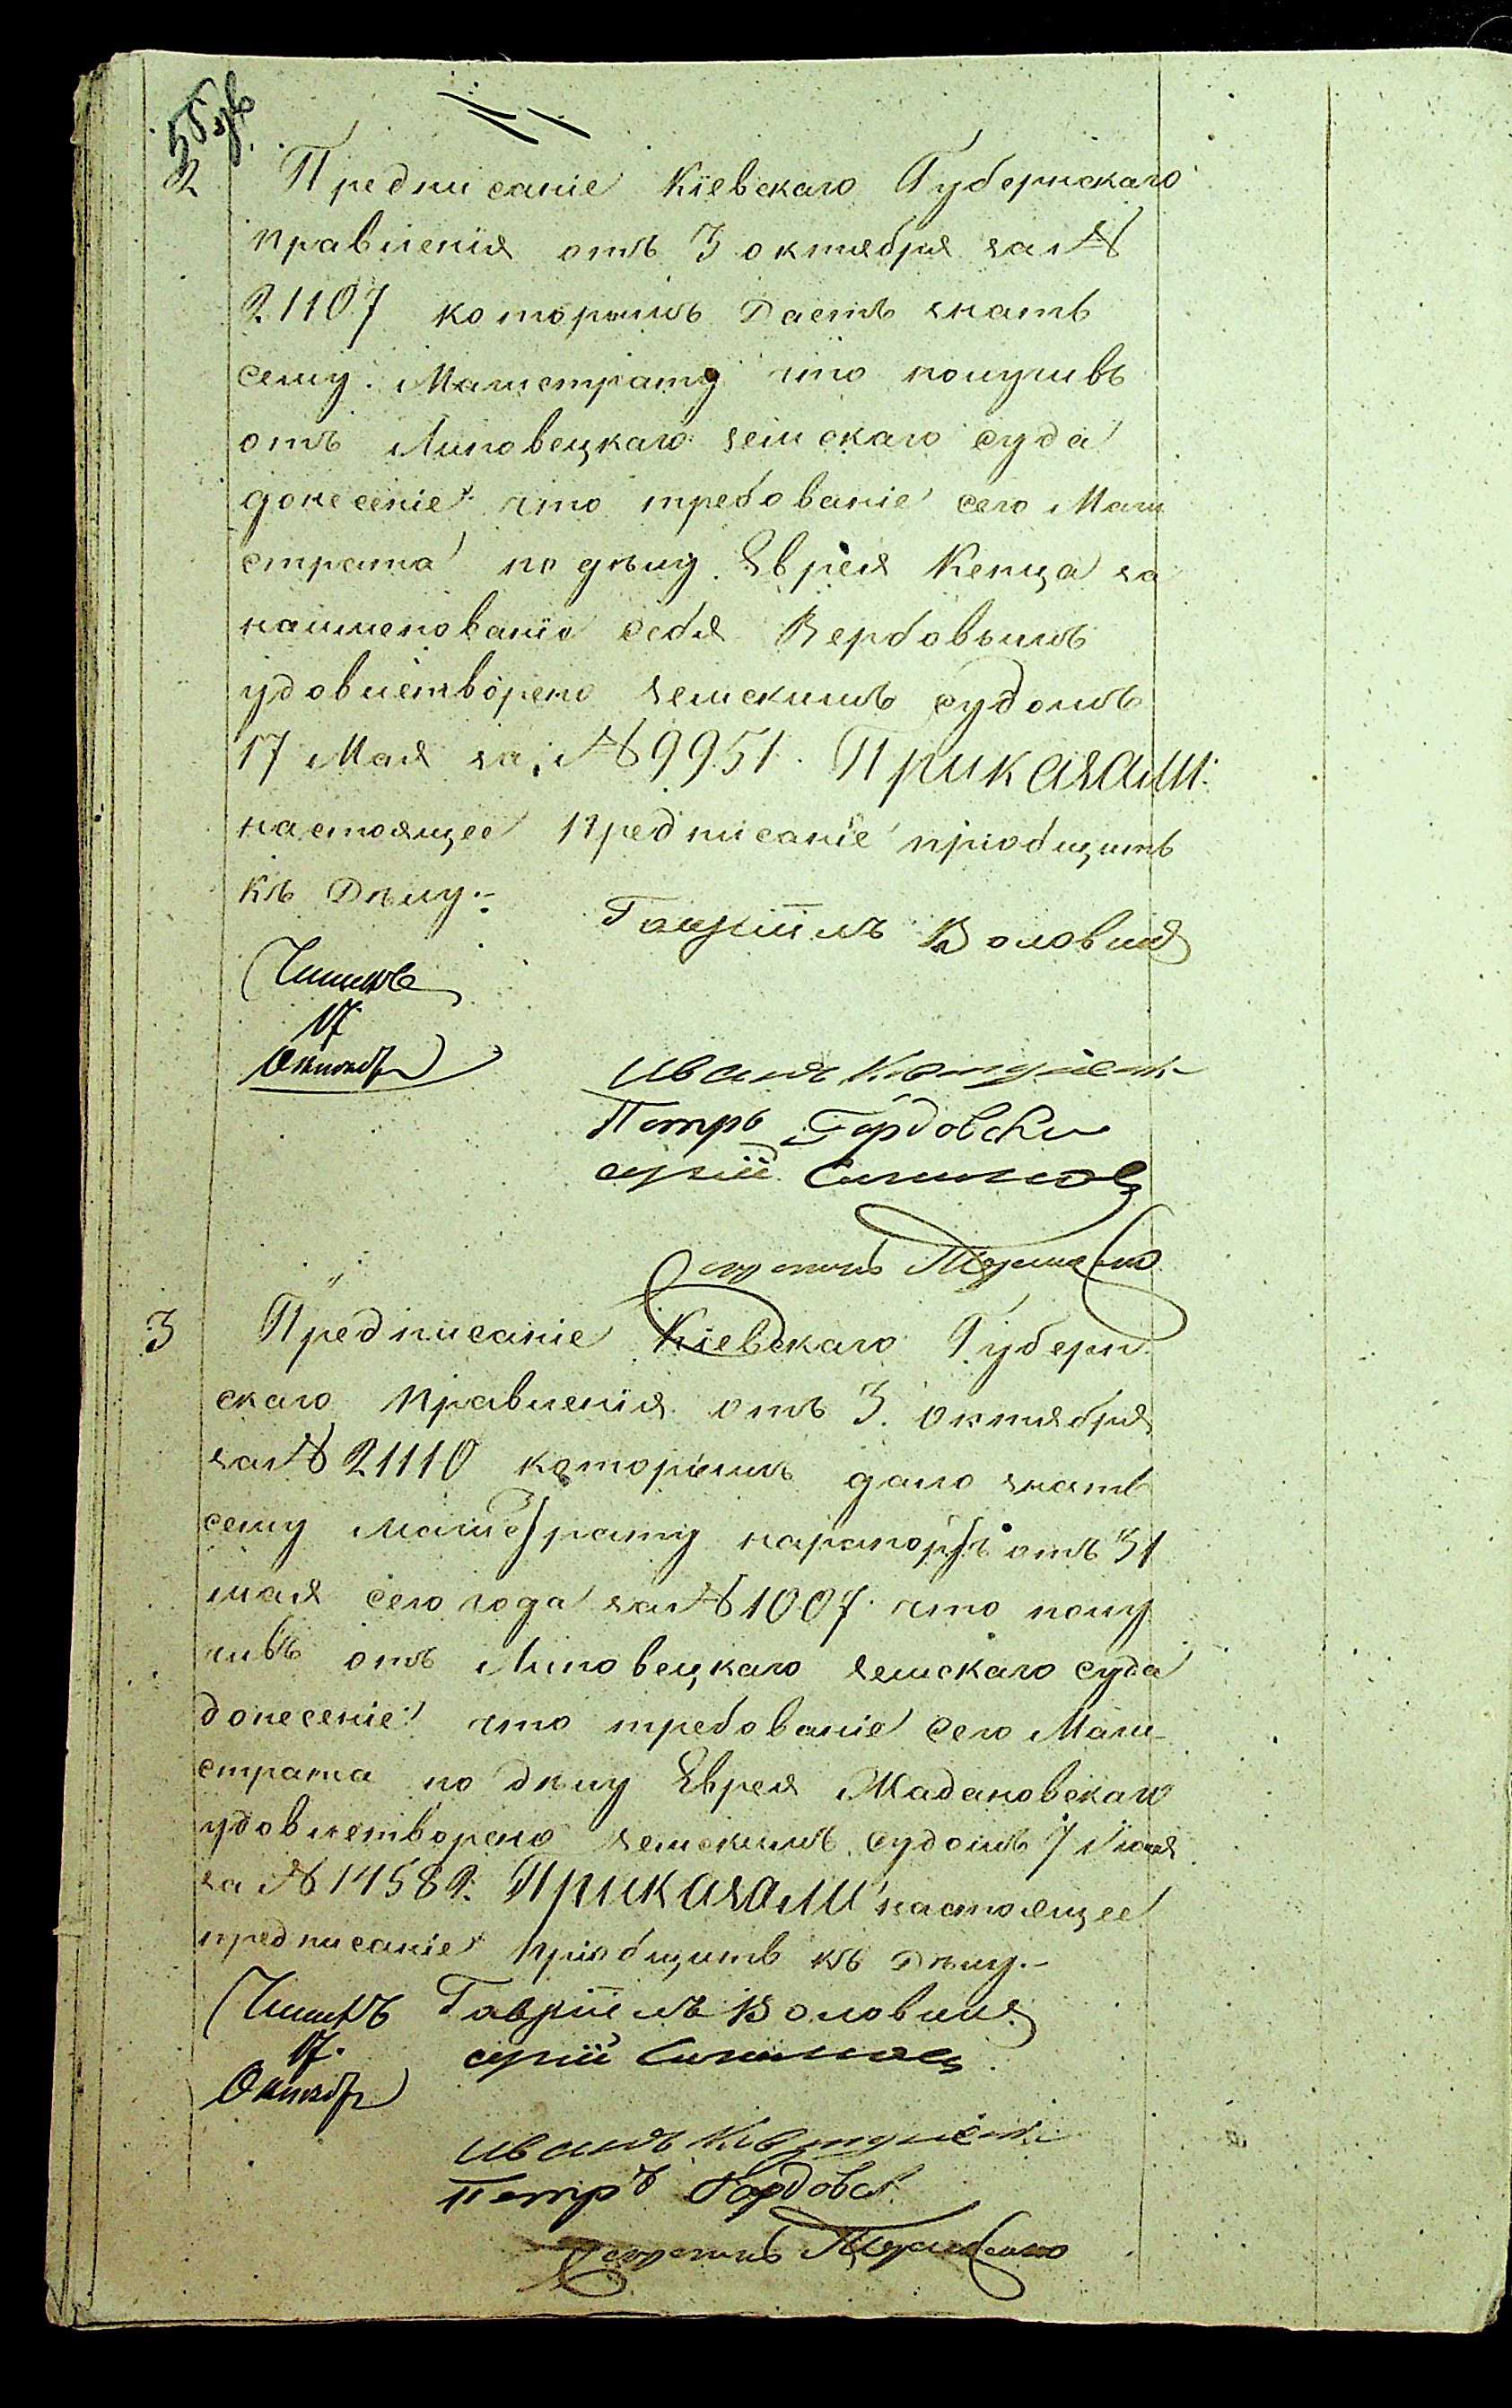 2 Предписаніе Кіевскаго Губернскаго
Правленія отъ 3 октября за №
21107 которымъ Даетъ знать
сему Магистрату что получивъ
отъ Липовецкаго земскаго суда
донесеніе что требованіе сего Маги
страта по дѣлу Еврея Кенца за
наименованіе себя Вербовымъ
удовлетворено земскимъ судомъ
17 Мая за № 9951. Приказали:
настоящее Предписаніе пріобщить
къ Дѣлу.-
Гавріилъ Воловик
17
Октября
Иванъ
Петръ Гордовски
Сергій
Секретарь
3 Предписаніе Кіевскаго Губерн
скаго Правленія отъ 3. октября
за № 21110 которымъ дано знать
сему Магистрату нарапортъ отъ 31
мая сего года за № 1007 что полу
чивъ отъ Липовецкаго земскаго суда
донесеніе что требованіе сего Маги-
страта по дѣлу Еврея Жадановскаго
удовлетворено земскимъ судомъ 7 Іюля
за № 14582. Приказали настоящее
предписаніе пріобщить къ Дѣлу.-
Гавріилъ Воловик
17.
Октябр
Сергій
Иванъ
Петръ Гордовс
Секретарь